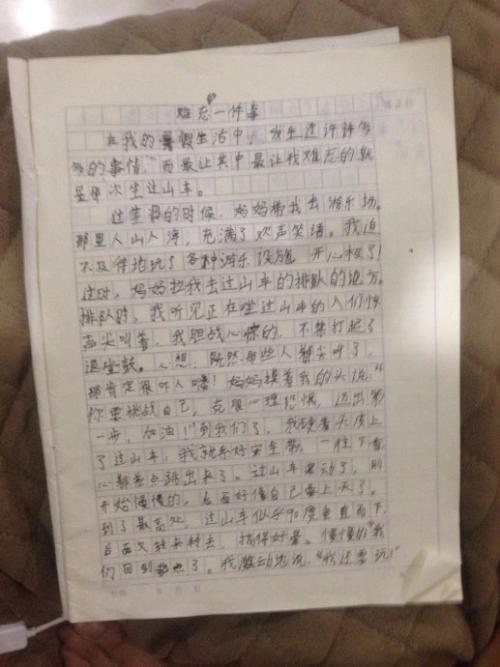 难忘一件事
在我的暑假生活中，发生过许许多
多的事情，而最让其中最让我难忘的就
是第一次坐过山车。
过生日的时候，妈妈带我去游乐场。
那里人山人海，充满了欢声笑语。我迫
不及待地玩了各种游乐设施，开心极了！
这时，妈妈拉我去过山车的排队的地方。
排队时，我听见正在坐过山车的人们惊
声尖叫着，我胆战心惊的，不禁打起了
退堂鼓。心想：既然那些人都尖叫了，
那肯定很吓人噻！妈妈摸着我的头说：“
你要挑战自己，克服心理恐惧，迈出第
一步，加油！”到我们了，我硬着头皮上
了过山车，我就系好安全带，一往下看，
心都差点跳出来了。过山车启动了，刚
开始慢慢的，后面好像自己要上天了。
到了最高处，过山车似乎90度垂直而下，
后面又转来转去，搞得好晕。慢慢的我
们回到起点了。我激动地说，“我还要玩！”